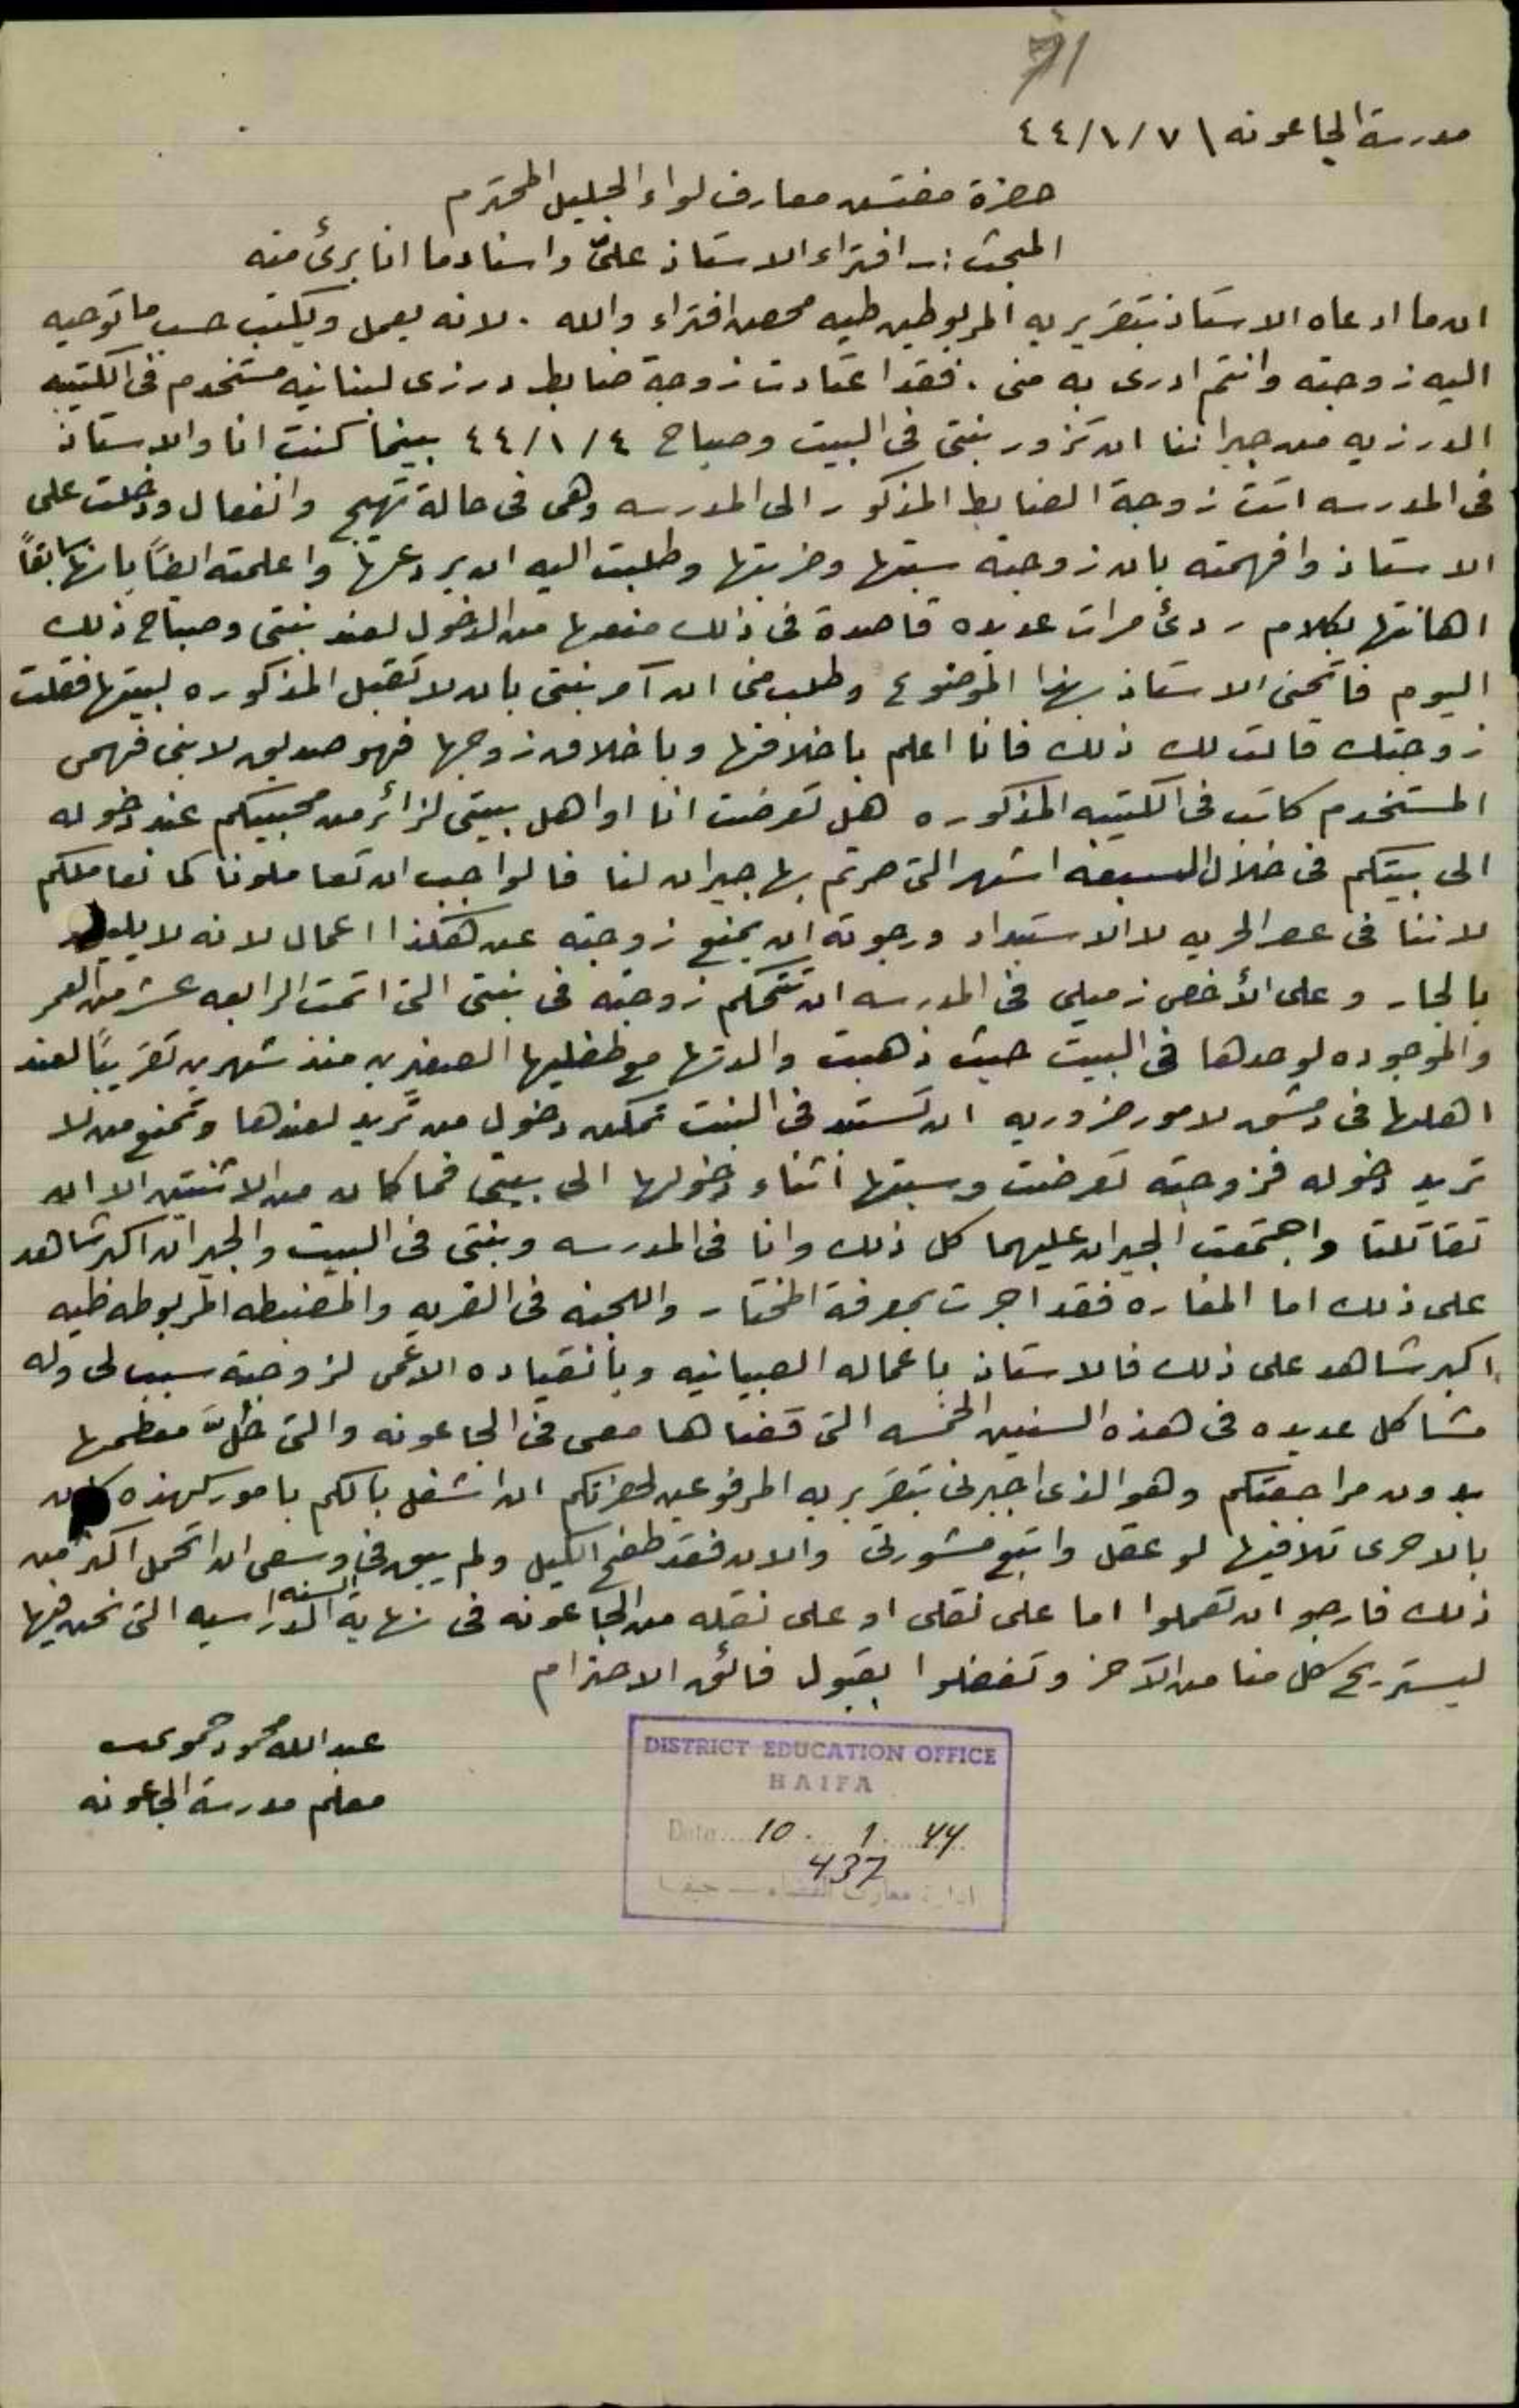 71
مدرسة الجاعونه \ ٧/١/٤٤
حضرة مفتش معارف لواء الجليل المحترم
المبحث :- افتراء الاستاذ عليّ واسناد ما انا برئ منه
ان ما ادعاه الاستاذ بتقريريه المربوطين طيه محض افتراء والله . لانه يعمل ويكتب حسب ما توحيه
اليه زوجته وانتم ادرى به مني . فقد اعتادت زوجة ضابط درزي لبنانيه مستخدم في الكتيبه
الدرزيه من جيراننا ان تزور بنتي في البيت وصباح ٤/١/٤٤ بينما كنت انا والاستاذ
في المدرسه اتت زوجة الضابط المذكور الى المدرسه وهى في حالة تهيج وانفعال ودخلت على
الاستاذ وافهمته بان زوجته سبتها وضربتها وطلبت اليه ان يردعها واعلمته ايضاً بانها سابقاً
اهانتها بكلام ردئ مرات عديده قاصدة في ذلك منعها من الدخول لعند بنتي وصباح ذلك
اليوم فاتحني الاستاذ بهذا الموضوع وطلب مني ان آمر بنتي بان لا تقبل المذكوره لبيتها فقلت
زوجتك قالت لك ذلك فانا اعلم باخلاقها وباخلاق زوجها فهو صديق لابني فهمي
المستخدم كاتب في الكتيبه المذكوره هل تعرضت انا او اهل بيتي لزائر من محبيكم عند دخوله
الى بيتكم في خلال السبعة اشهر التي صرتم بها جيران لنا فالواجب ان تعاملونا كما نعاملكم
لاننا في عصر الحريه لا الاستبداد ورجوته ان يمنع زوجته عن هكذا اعمال لانه لا يليق
بالجار وعلى الأخص زميلي في المدرسه ان تتحكم زوجته في بنتي التي اتمت الرابعه عشر من العمر
والموجوده لوحدها في البيت حيث ذهبت والدتها مع طفليها الصغيرين منذ شهرين تقريباً لعند
اهلها في دمشق لامور ضروريه ان تستبد في البنت تمكن دخول من تريد لعندها وتمنع من لا
تريد دخوله فزوجته تعرضت وسبتها اثناء دخولها الى بيتي فما كان من الاثنتين الا ان
تقاتلتا واجتمعت الجيران عليهما كل ذلك وانا في المدرسه وبنتي في البيت والجيران اكبر شاهد
على ذلك اما المغاره فقد اجرت بمعرفة المختار واللجنه في القريه والمضبطه المربوطه طيه
اكبر شاهد على ذلك فالاستاذ باعماله الصبيانيه وبانقياده الاعمى لزوجته سبب لي وله
مشاكل عديده في هذه السنين الخمسه التي قضاها معي في الجاعونه والتي حُلَّ معظمها
بدون مراجعتكم وهو الذي اجبرني بتقريريه المرفوعين لحضرتكم ان اشغل بالكم بامور كهذه كان
بالاحرى تلافيها لو عقل واتبع مشورتي والان فقد طفح الكيل ولم يبق في وسعي ان اتحمل اكثر من
ذلك فارجو ان تعملوا اما على نقلي او على نقله من الجاعونه في نهاية السنه الدراسيه التي نحن فيها
ليستريح كل منا من الآخر وتفضلوا بقبول فائق الاحترام
عبد الله محمود
معلم مدرسة الجاعونه
DISTRICT EDUCATION OFFICE
HAIFA
Date....10. 1. 44
437
ادارة معارف القضاء — حيفا